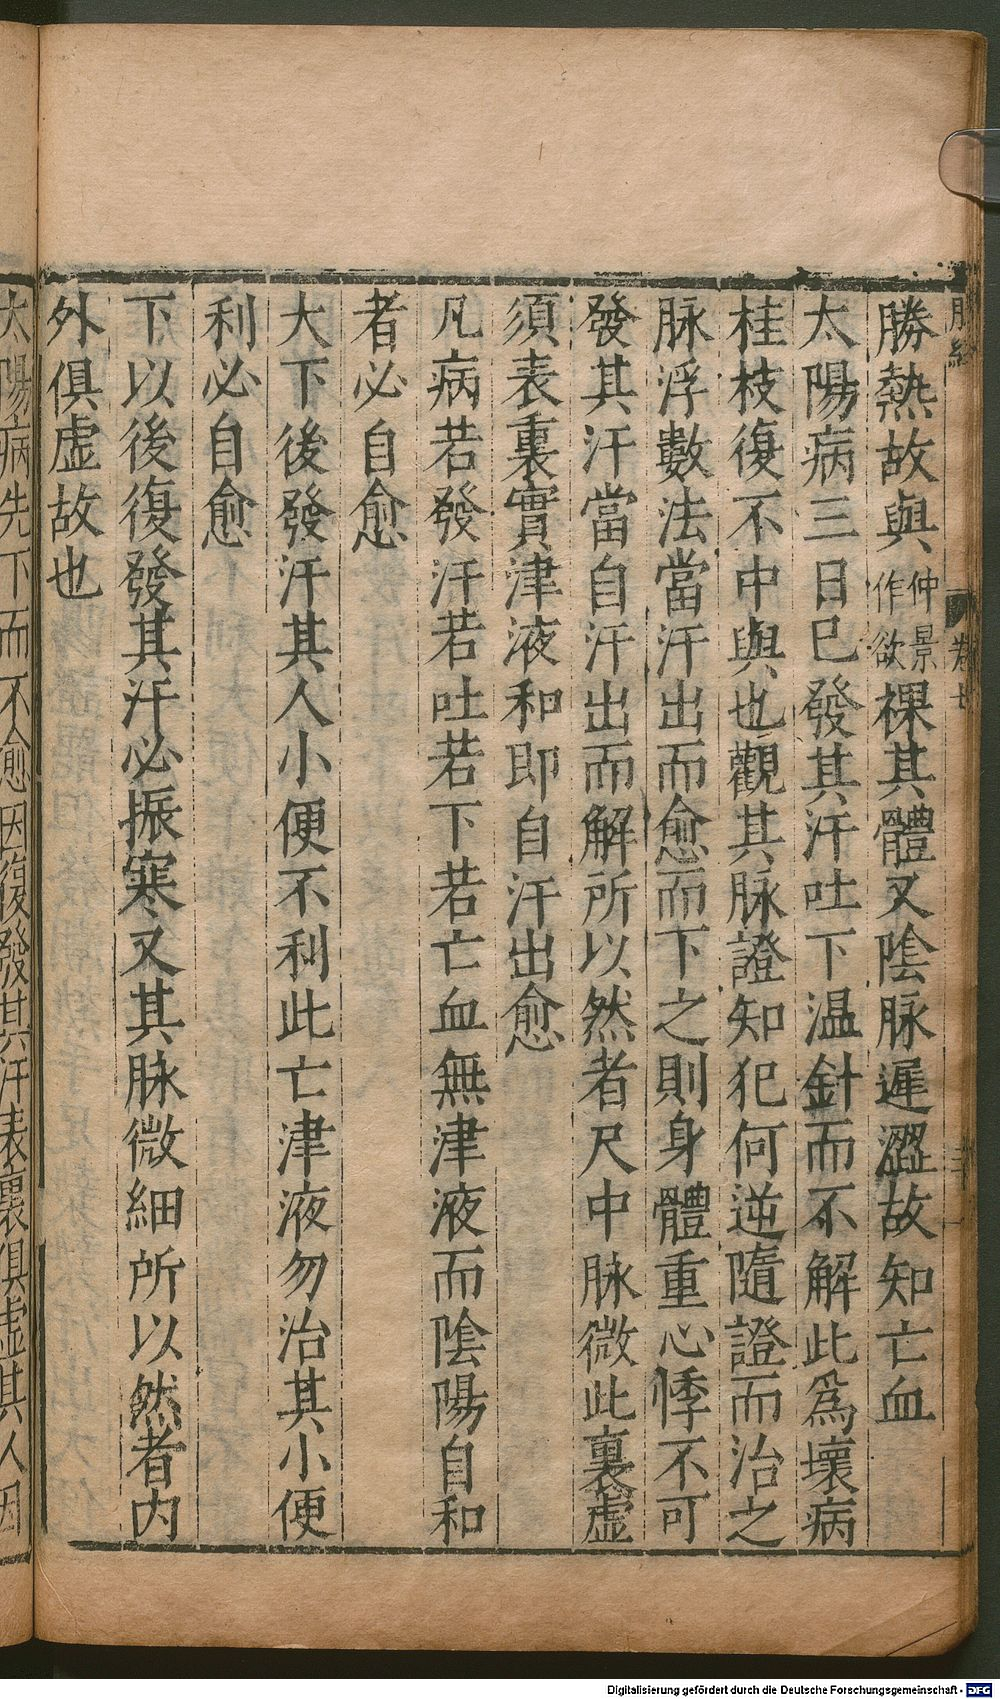 脉經
卷七
勝熱故與仲景作欲裸其體又陰脉遲澀故知亡血
太陽病三日已發其汗吐下温針而不解此爲壞病
桂枝復不中與也觀其脉證知犯何逆隨證而治之
脉浮數法當汗出而愈而下之則身體重心悸不可
發其汗當自汗出而解所以然者尺中脉微此裏虛
須表裏實津液和即自汗出愈
凡病若發汗若吐若下若亡血無津液而陰陽自和
者必自愈
大下後發汗其人小便不利此亡津液勿治其小便
利必自愈
下以後復發其汗必振寒又其脉微細所以然者内
外俱虛故也
太陽病先下而不愈因復發其汗表裏俱虛其人因
Digitalisierung gefördert durch die Deutsche Forschungsgemeinschaft - DFG